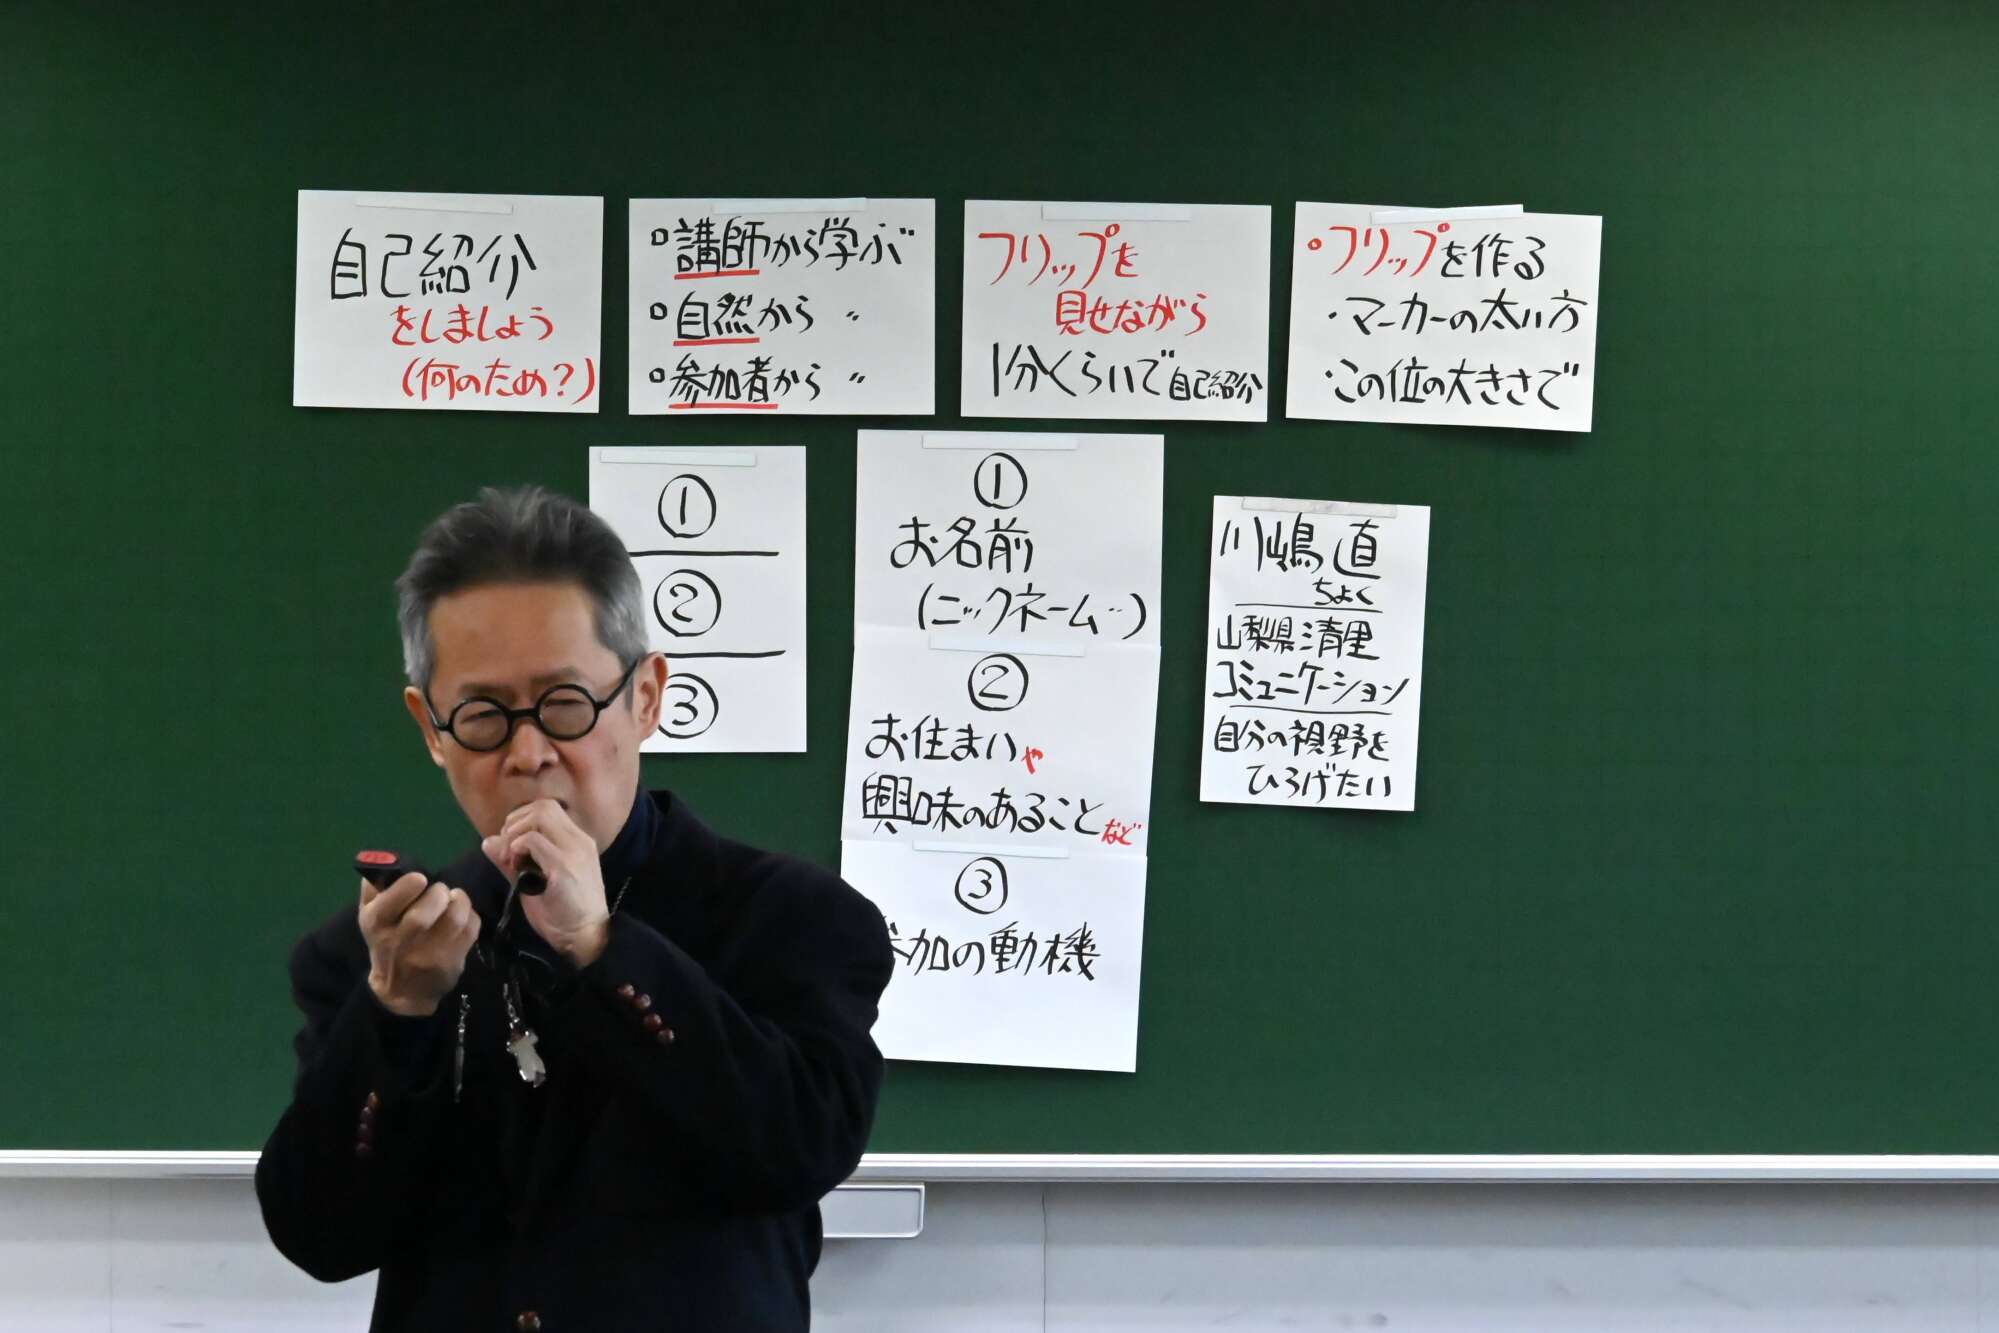 自己紹介
をしましょう
(何のため?)
講師から学ぶ
自然から 〃
参加者から 〃
フリップを
見せながら
1分くらいで自己紹介
・フリップを作る
・マーカーの太い方
・この位の大きさで
①
②
③
①
お名前
(ニックネーム‥)
②
お住まいや
興味のあることなど
③
参加の動機
川嶋 直
ちょく
山梨県清里
コミュニケーション
自分の視野を
ひろげたい